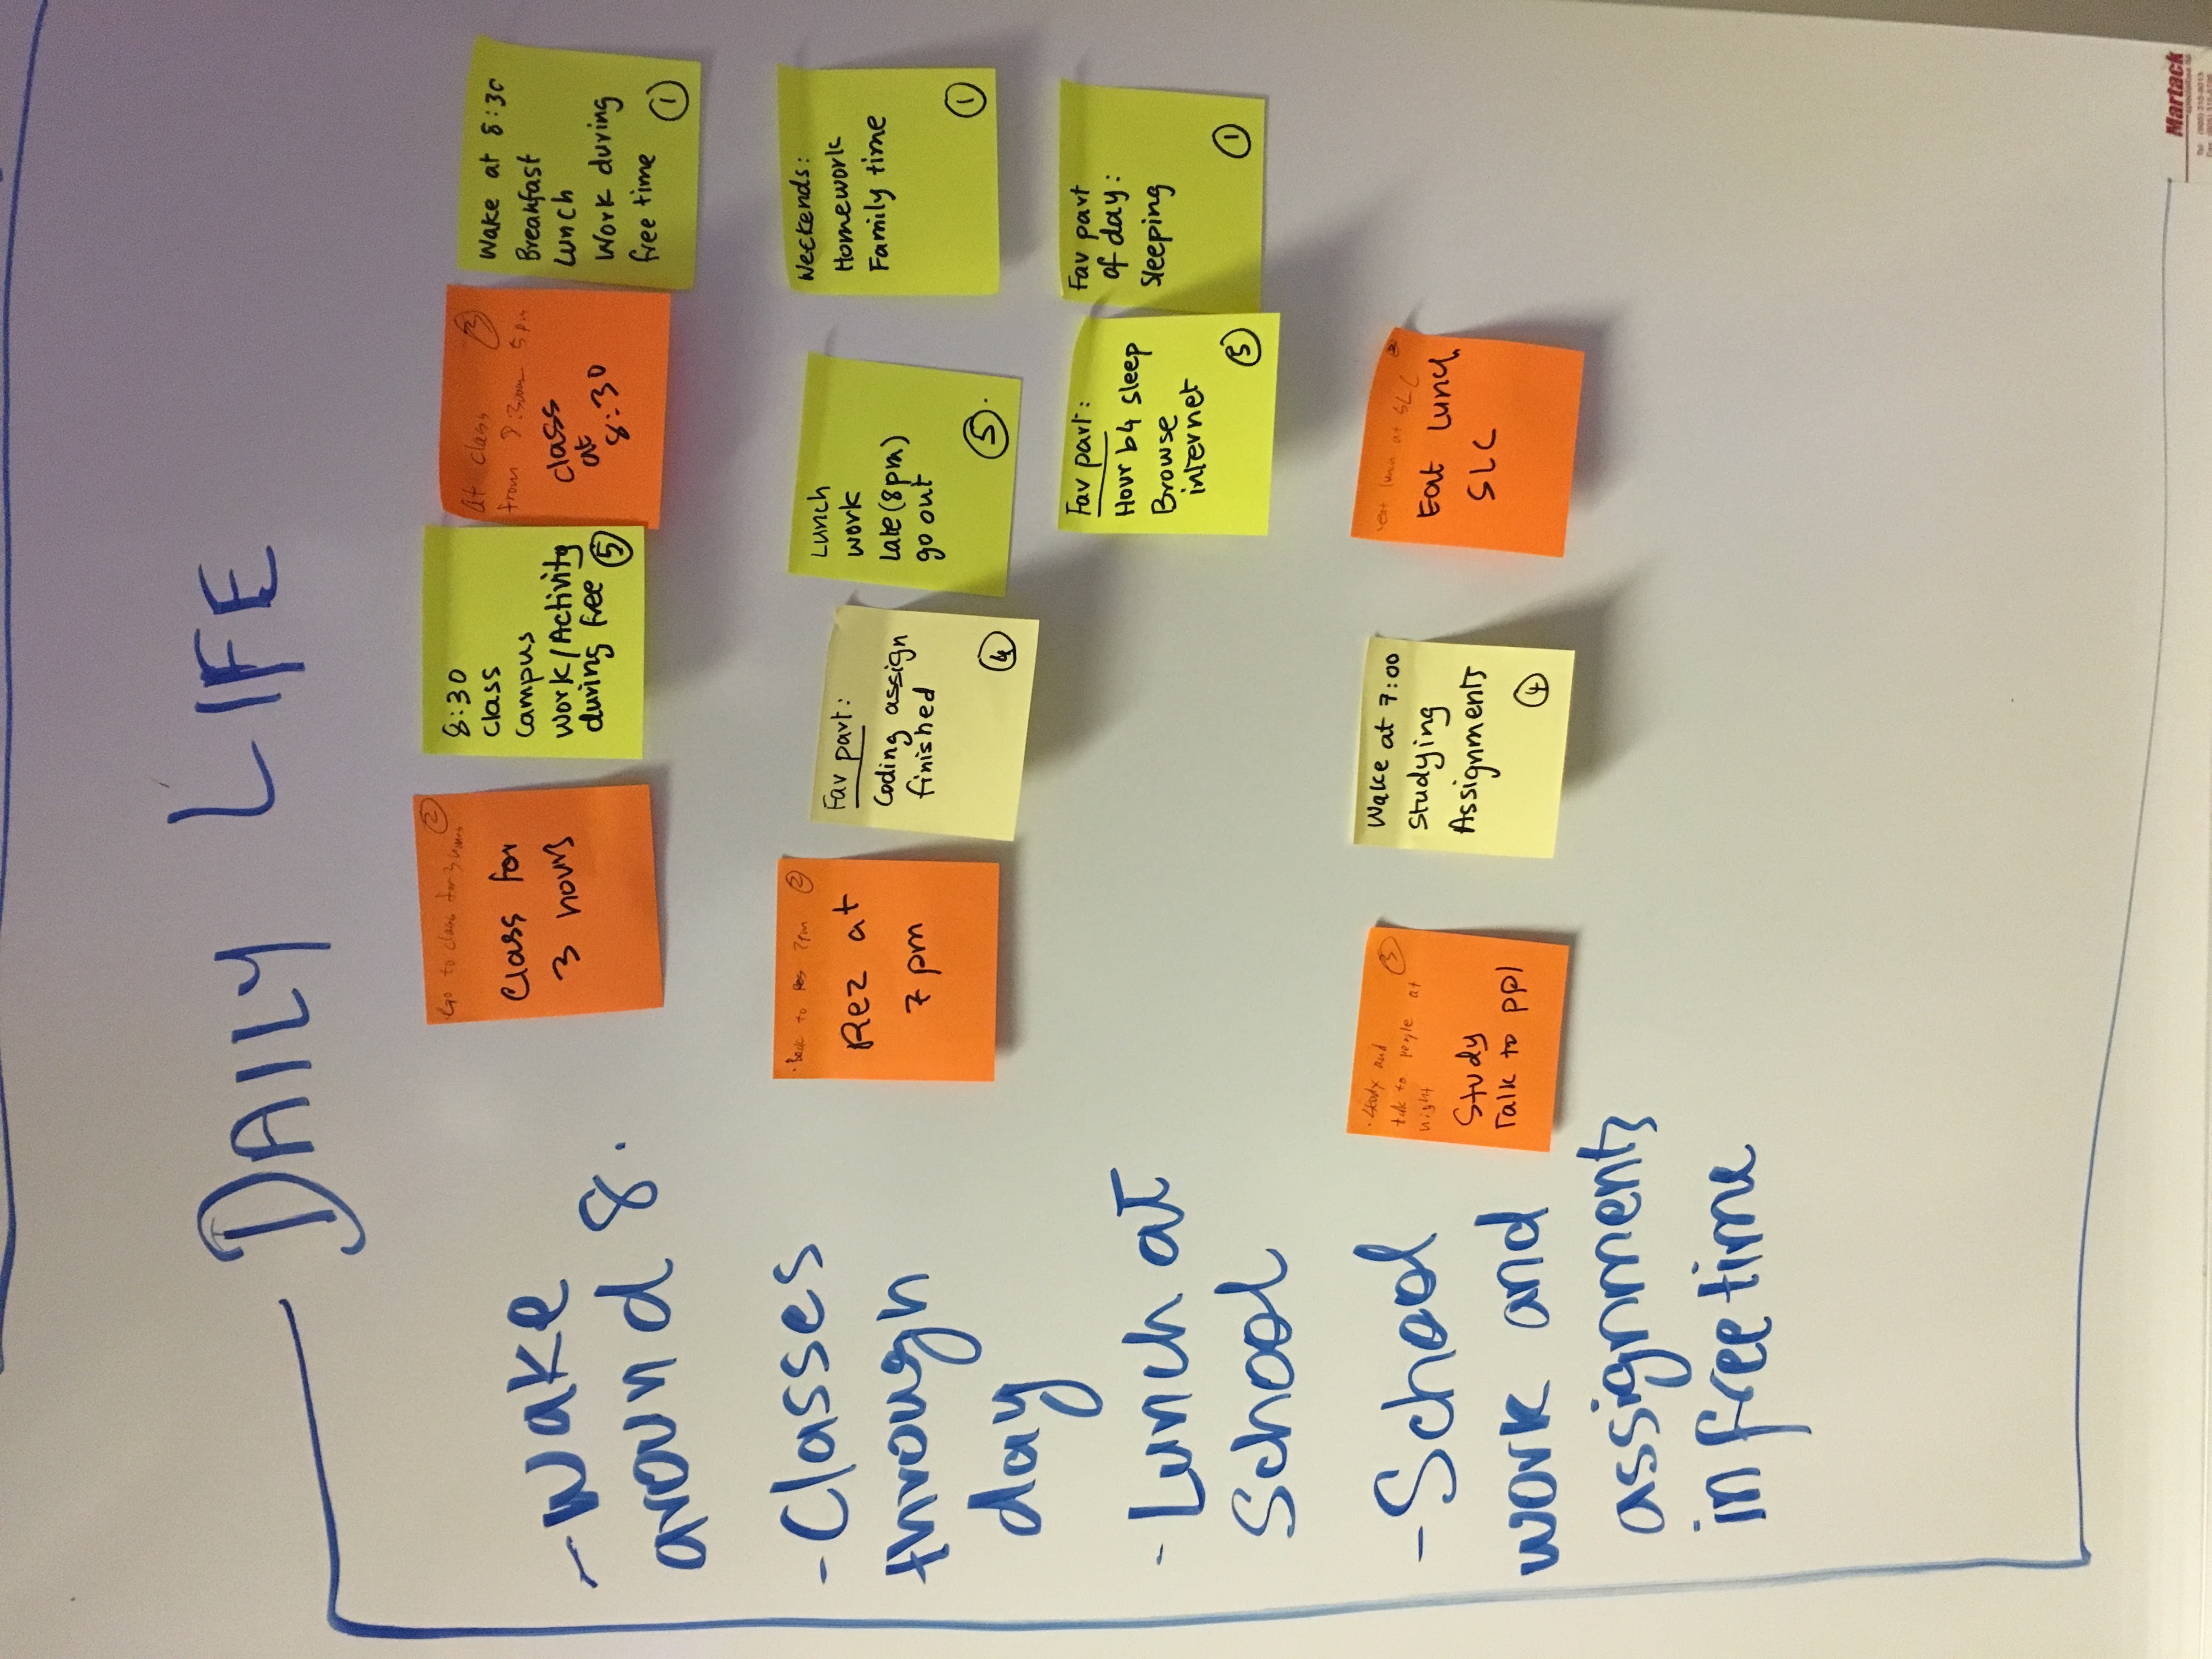 DAILY LIFE
- Wake
around 8.
- Classes
through
day
- Lunch at
School
- School
work and
assignments
in free time
Go to class for 3 hours 2
Class for
3 hours
8:30
Class
Campus
Work/Activity
during free
5
At class 3
from 8:30am 5pm
class
at
8:30
Wake at 8:30
Breakfast
Lunch
Work during
free time
1
• Back to Res 7pm 2
Rez at
7 pm
Fav part:
Coding assign
finished
4
Lunch
work
Late (8pm)
go out
5
Weekends:
Homework
Family time
1
Fav part:
Hour b4 sleep
Browse
internet
5
Fav part
of day:
Sleeping
1
• Study and 3
talk to people at
night
Study
Talk to ppl
Wake at 7:00
Studying
Assignments
4
eat lunch at SLC
Eat Lunch
SLC
Martack